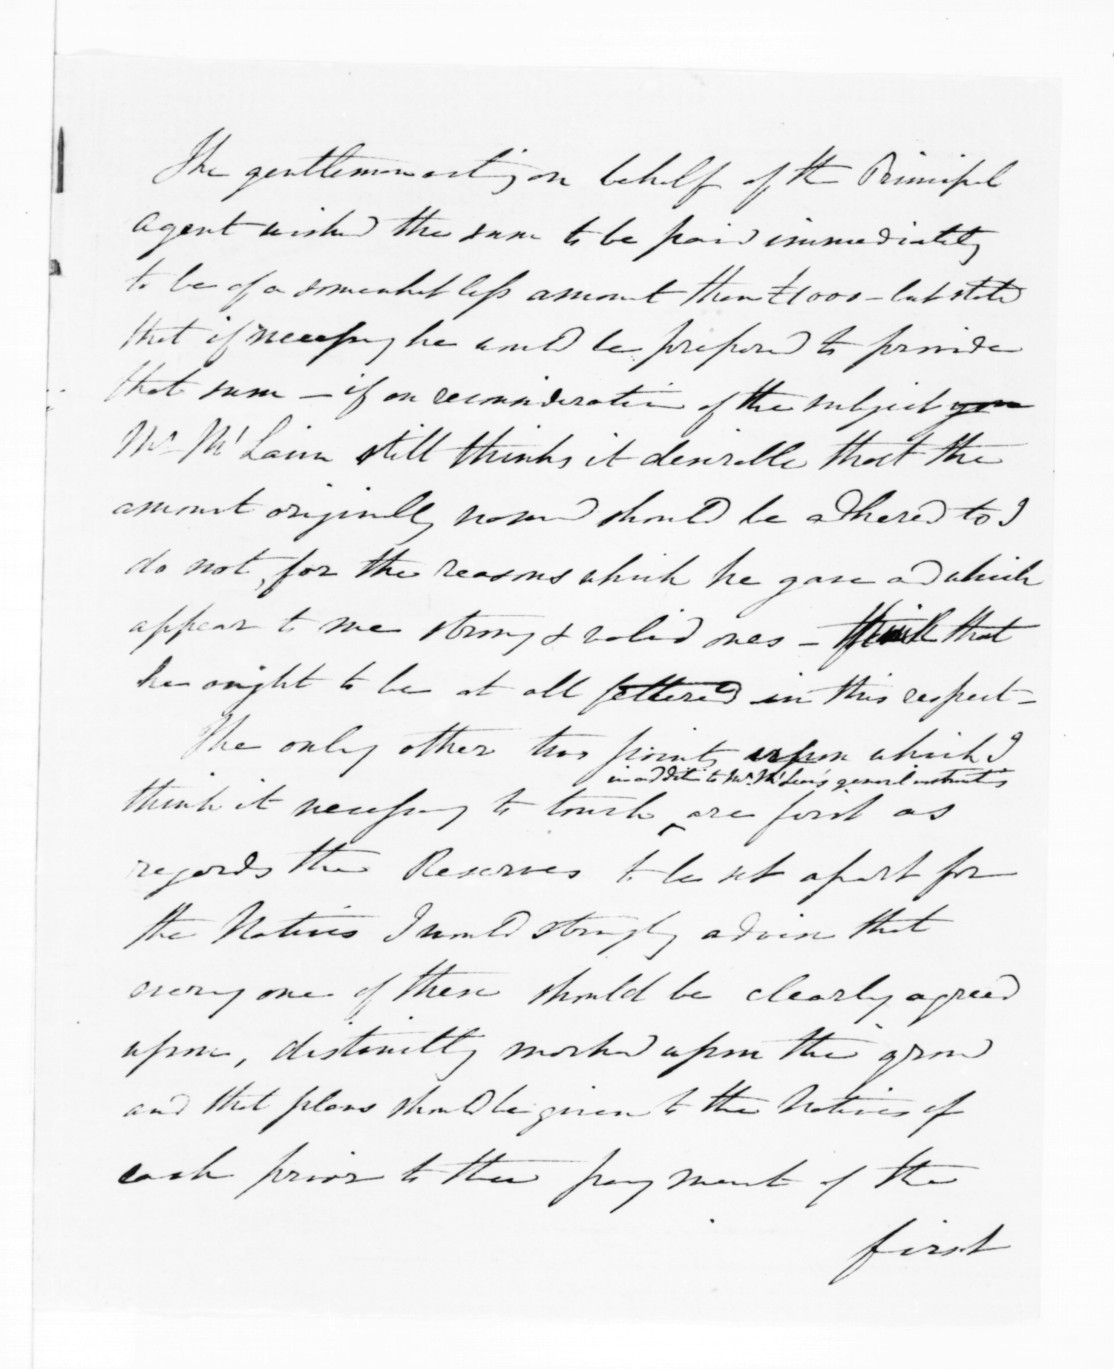 The gentleman acting on behalf of the Principal
Agent wished the sum to be paid immediately
to be of a somewhat less amount than £1000 - but stated
that if necessary he would be prepared to provide
that sum - if on reconsideration of the subject you
Mr McLean still thinks it desirable that the
amount originally named should be adhered to I
do not, for the reasons which he gave and which
appear to me strong & valid ones - think that
he ought to be at all fettered in this respect -
The only other two points upon which I
in addition to Mr McLean's general instructions
think it necessary to touch are first as
regards the Reserves to be set apart for
the Natives I would strongly advise that
every one of these should be clearly agreed
upon, distinctly marked upon the ground
and that plans should be given to the Natives of
each prior to the payment of the
first